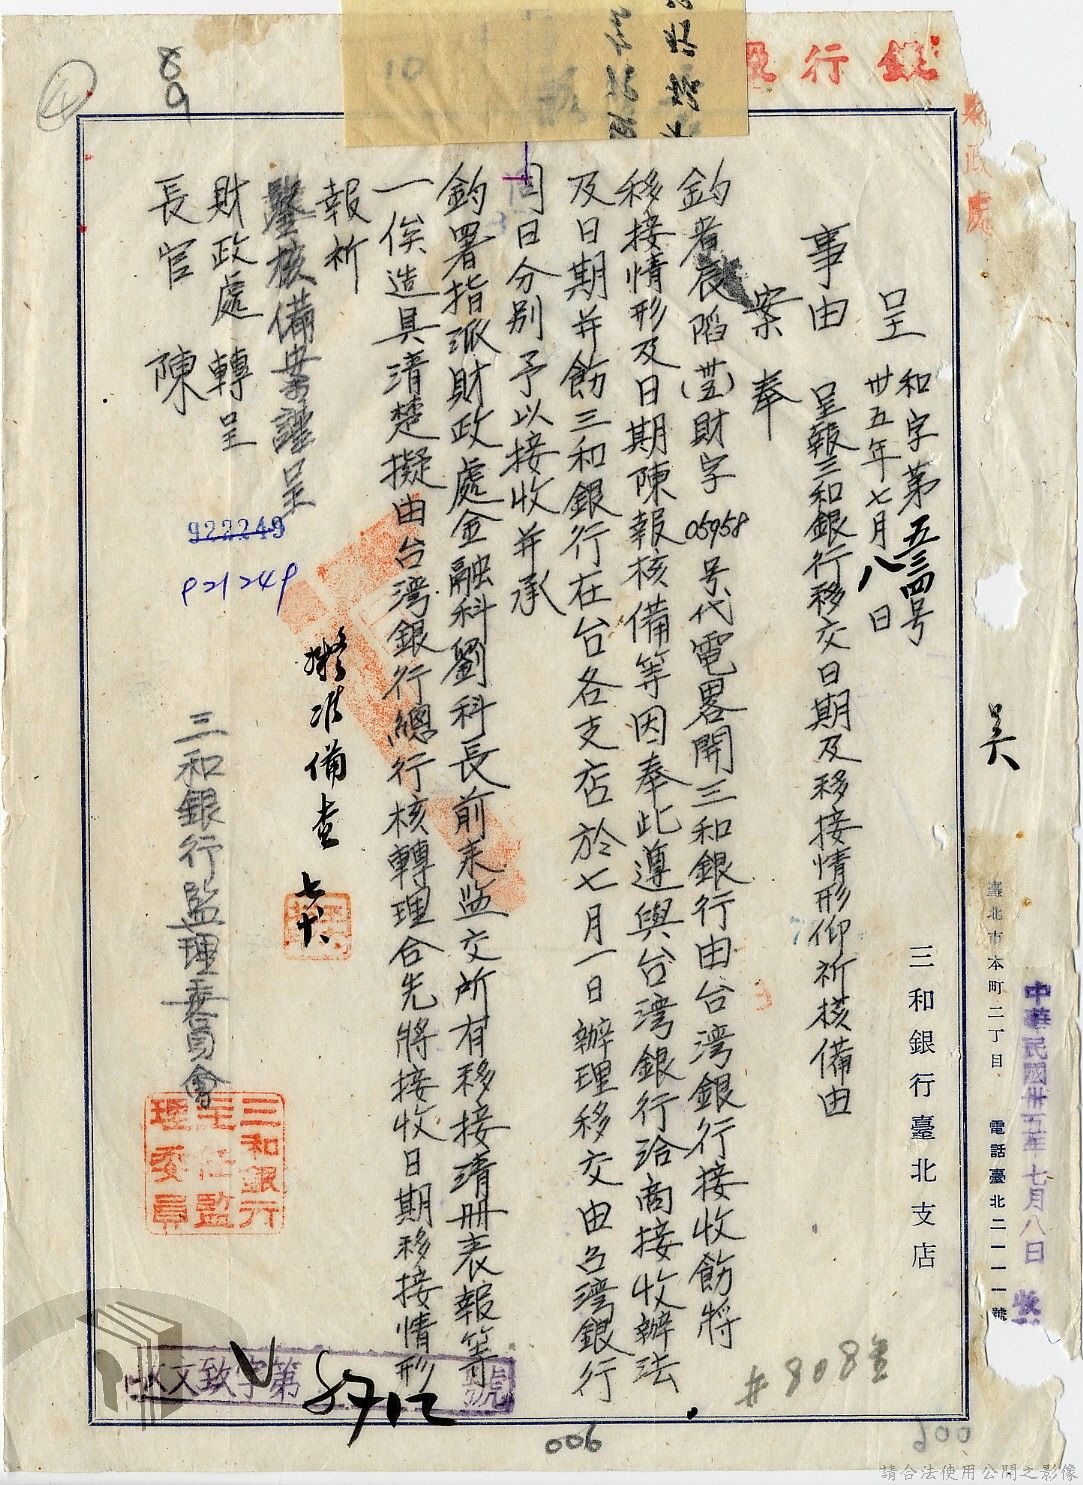 銀行
縣政處
中華民國卅五年七月八日 收
臺北市本町二丁目 電話臺北二一一一號
吳
三和銀行臺北支店
呈 和字第五三四号
卅五年七月八日
事由 呈報三和銀行移交日期及移接情形仰祈核備由
案奉
鈞署辰陷(卅五)財字05958号代電畧開三和銀行由台湾銀行接收飭將
移接情形及日期陳報核備等因奉此遵與台湾銀行洽商接收辦法
及日期并飭三和銀行在台各支店於七月一日辦理移交由台湾銀行
同日分別予以接收并承
鈞署指派財政處金融科劉科長前来监交所有移接清册表報等
一俟造具清楚擬由台湾銀行總行核轉理合先將接收日期移接情形
報祈
鑒核備案謹呈
財政處轉呈
長官陳
三和銀行監理委員會
擬准備查
七、十、
922249
921249
三和銀行
主任監
理委員
收文致字第 8712 號
89
4
10
#808
006
900
請合法使用公開之影像